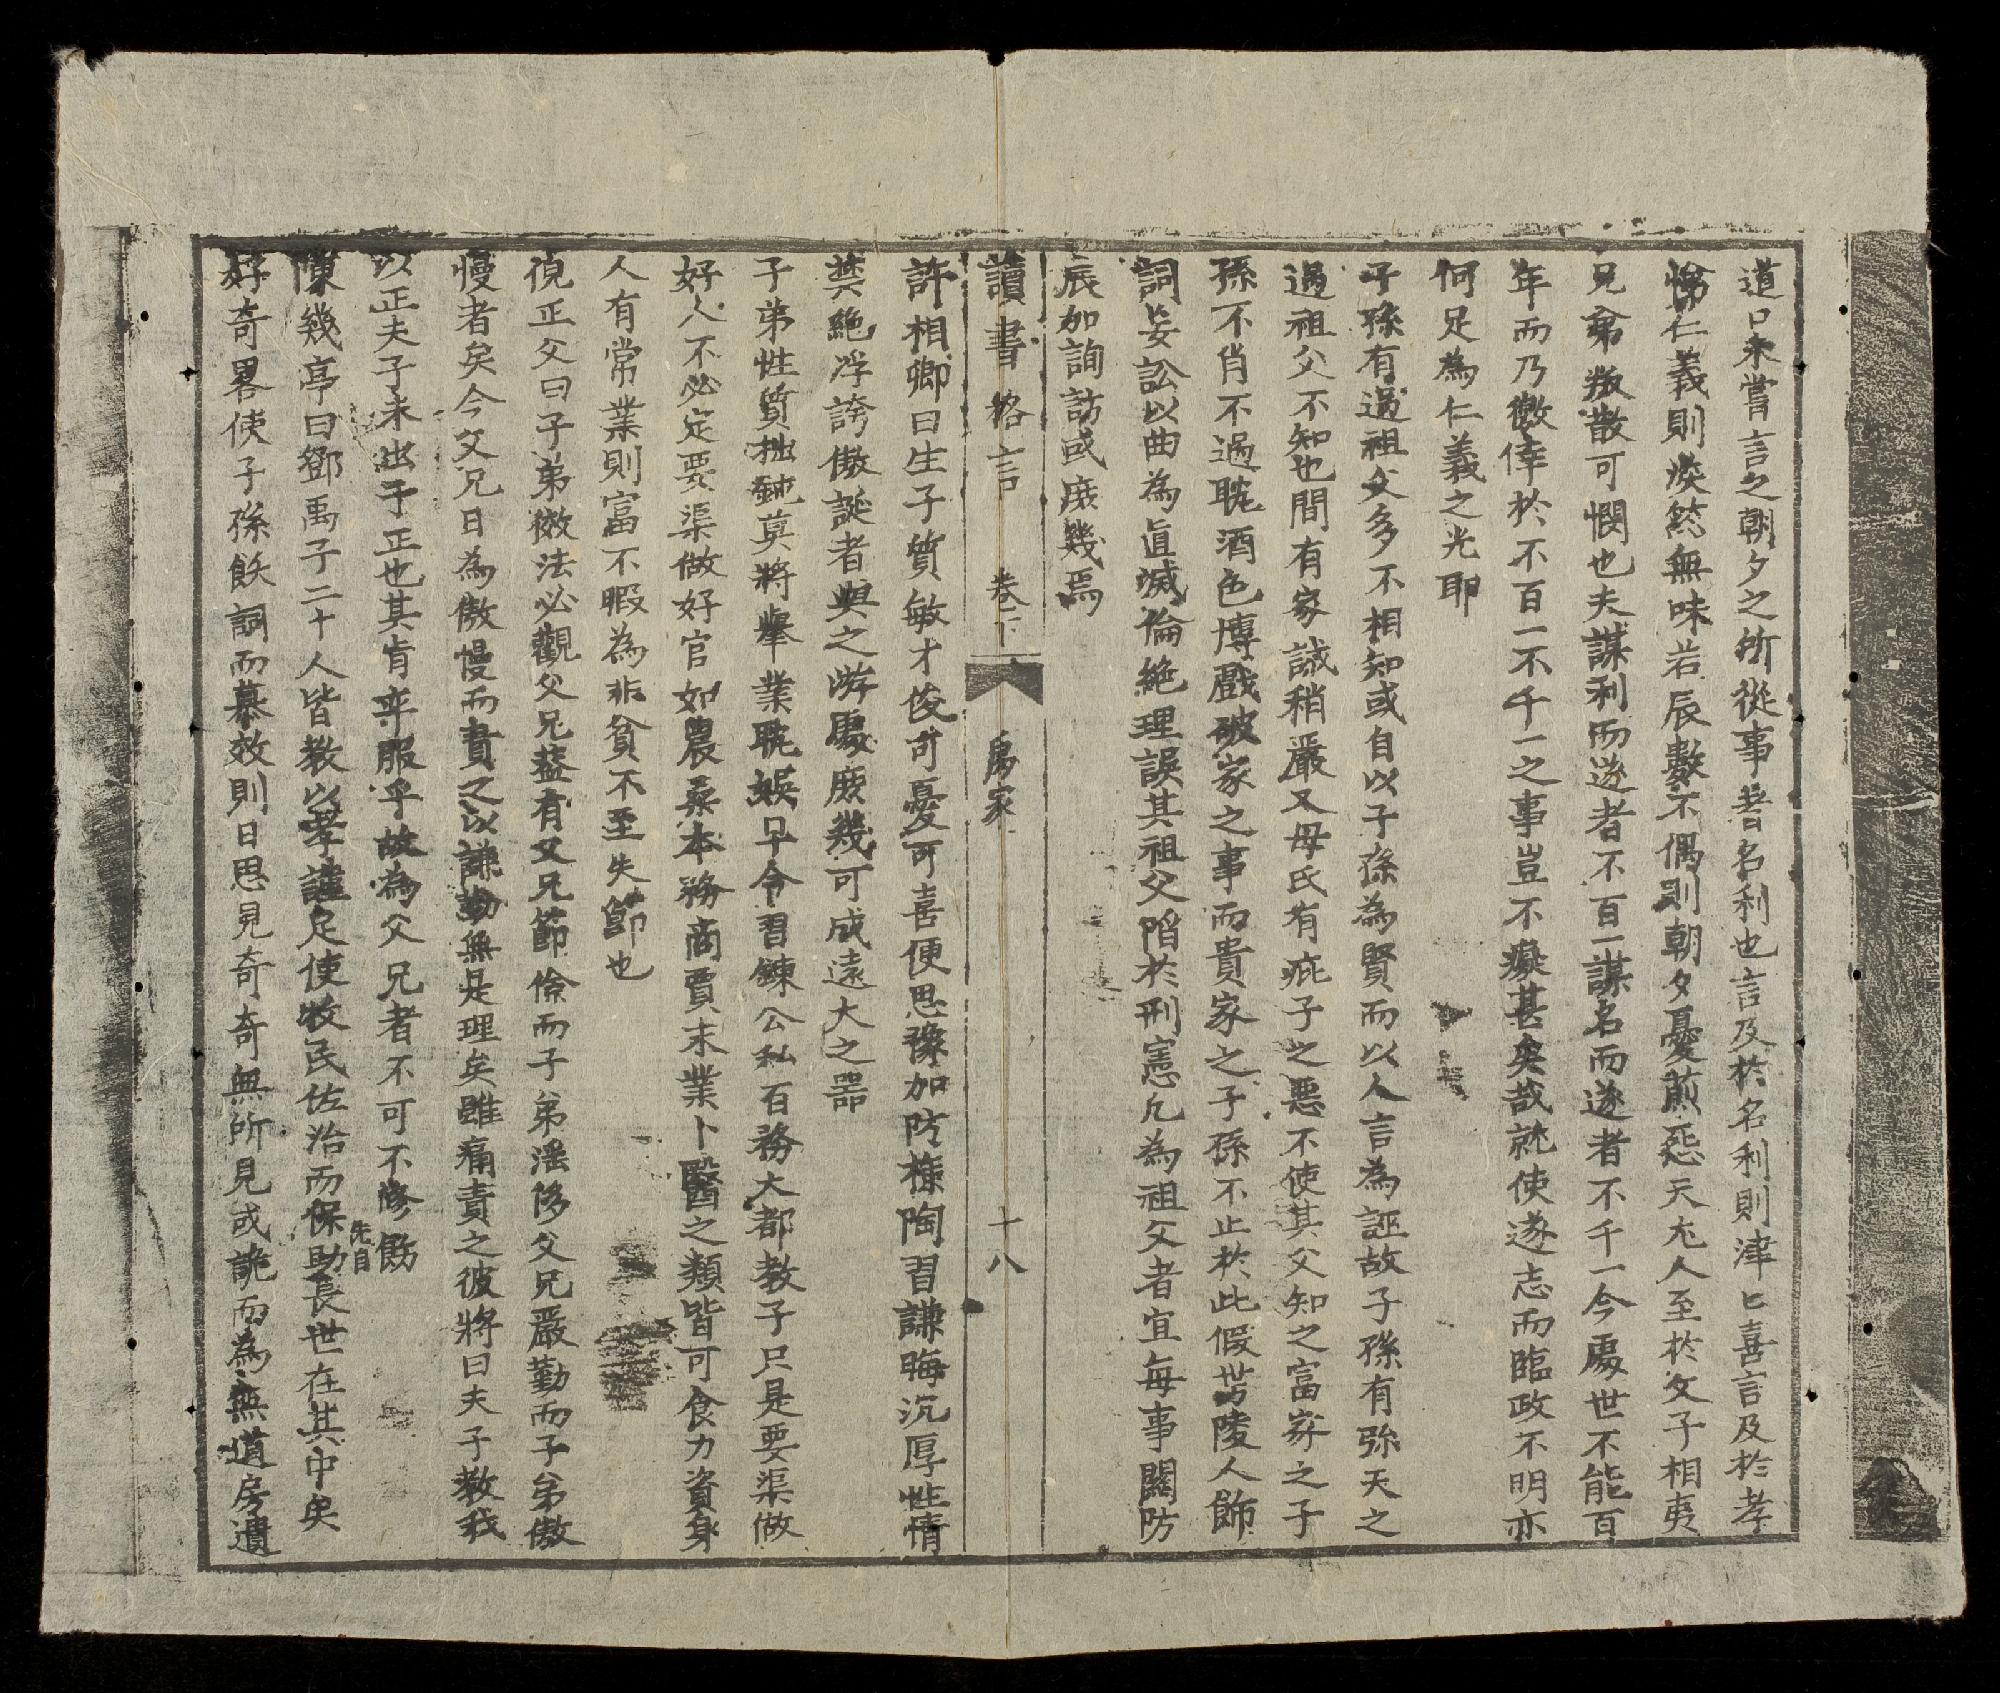 道口未嘗言之朝夕之所從事者名利也言及於名利則津匕喜言及於孝
悌仁義則淡然無味若辰數不偶則朝夕憂煎怨天尤人至於父子相夷
兄弟叛散可憫也夫謀利而遂者不百一謀名而遂者不千一今處世不能百
年而乃徼倖於不百一不千一之事豈不癡甚矣哉就使遂志而臨政不明亦
何足為仁義之光耶
子孫有過祖父多不相知或自以子孫為賢而以人言為誣故子孫有弥天之
過祖父不知也間有家誡稍嚴又母氏有疵子之惡不使其父知之富家之子
孫不肖不過耽酒色博戲破家之事而貴家之子孫不止於此假勢陵人飾
詞妄訟以曲為直滅倫絶理誤其祖父陷於刑憲凡為祖父者宜每事關防
辰加詢訪或庶幾焉
讀書格言 卷下 居家 十八
許相卿曰生子質敏才俊可憂可喜便思豫加防檢陶習謙晦沉厚性情
禁絶浮誇傲誕者與之游處庶幾可成遠大之噐
子弟性質拙鈍莫將舉業耽悮早令習鍊公私百務大都教子只是要渠做
好人不必定要渠做好官如農桑本務商賈末業卜醫之類皆可食力資身
人有常業則富不暇為非貧不至失節也
倪正父曰子弟傚法必觀父兄葢有父兄節儉而子弟滛侈父兄嚴勤而子弟傲
慢者矣今父兄日為傲慢而責之以謙勤無是理矣雖痛責之彼將曰夫子教我
以正夫子未出于正也其肯率服乎故為父兄者不可不先自修飭
陳幾亭曰鄧禹子二十人皆教以孝謹足使牧民佐治而保助長世在其中矣
好奇畧使子孫飫詞而慕效則日思見奇奇無所見或詭而為無道房遺